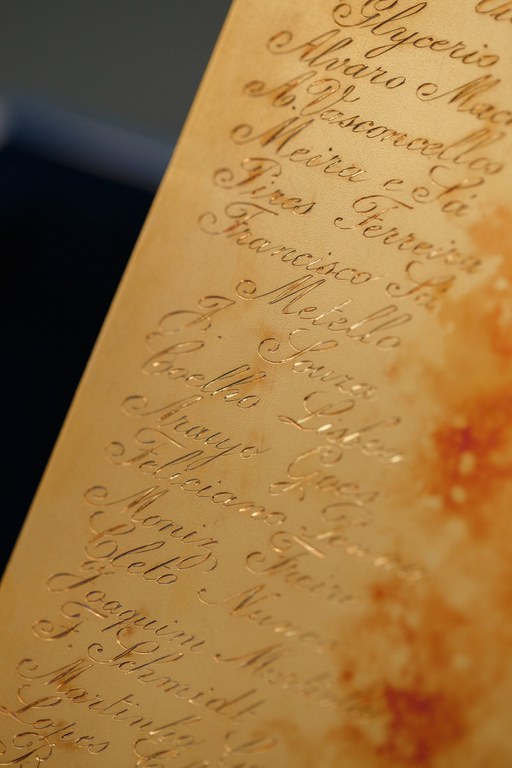 Glycerio
Alvaro Mac
A. Vasconcellos
Meira e Sá
Pires Ferreira
Francisco Sá
Metello
F. Souza
Coelho Lisboa
Araujo Goes
Feliciano Penna
Moniz Freire
Cleto Nunes
Joaquim
F. Schmidt
Martinho
Lopes